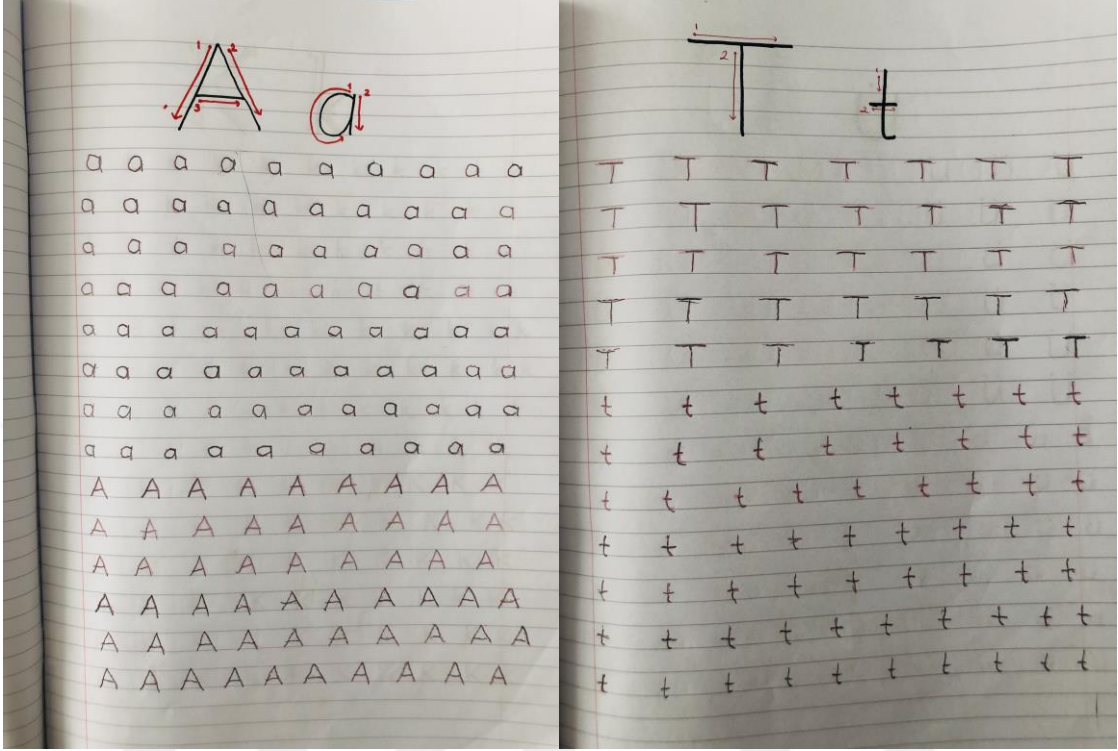 1 2 3
A a
1 2
a a a a a a a a a a
a a a a a a a a a a
a a a a a a a a a a
a a a a a a a a a a
a a a a a a a a a a a
a a a a a a a a a a a
a a a a a a a a a a a
a a a a a a a a a a
A A A A A A A A A
A A A A A A A A A
A A A A A A A A A
A A A A A A A A A A
A A A A A A A A A A
A A A A A A A A A A
1 2
T t
1 2
T T T T T T T
T T T T T T T
T T T T T T T
T T T T T T T
T T T T T T T
t t t t t t t t
t t t t t t t t
t t t t t t t t t
t t t t t t t t t
t t t t t t t t t
t t t t t t t t t t
t t t t t t t t t t